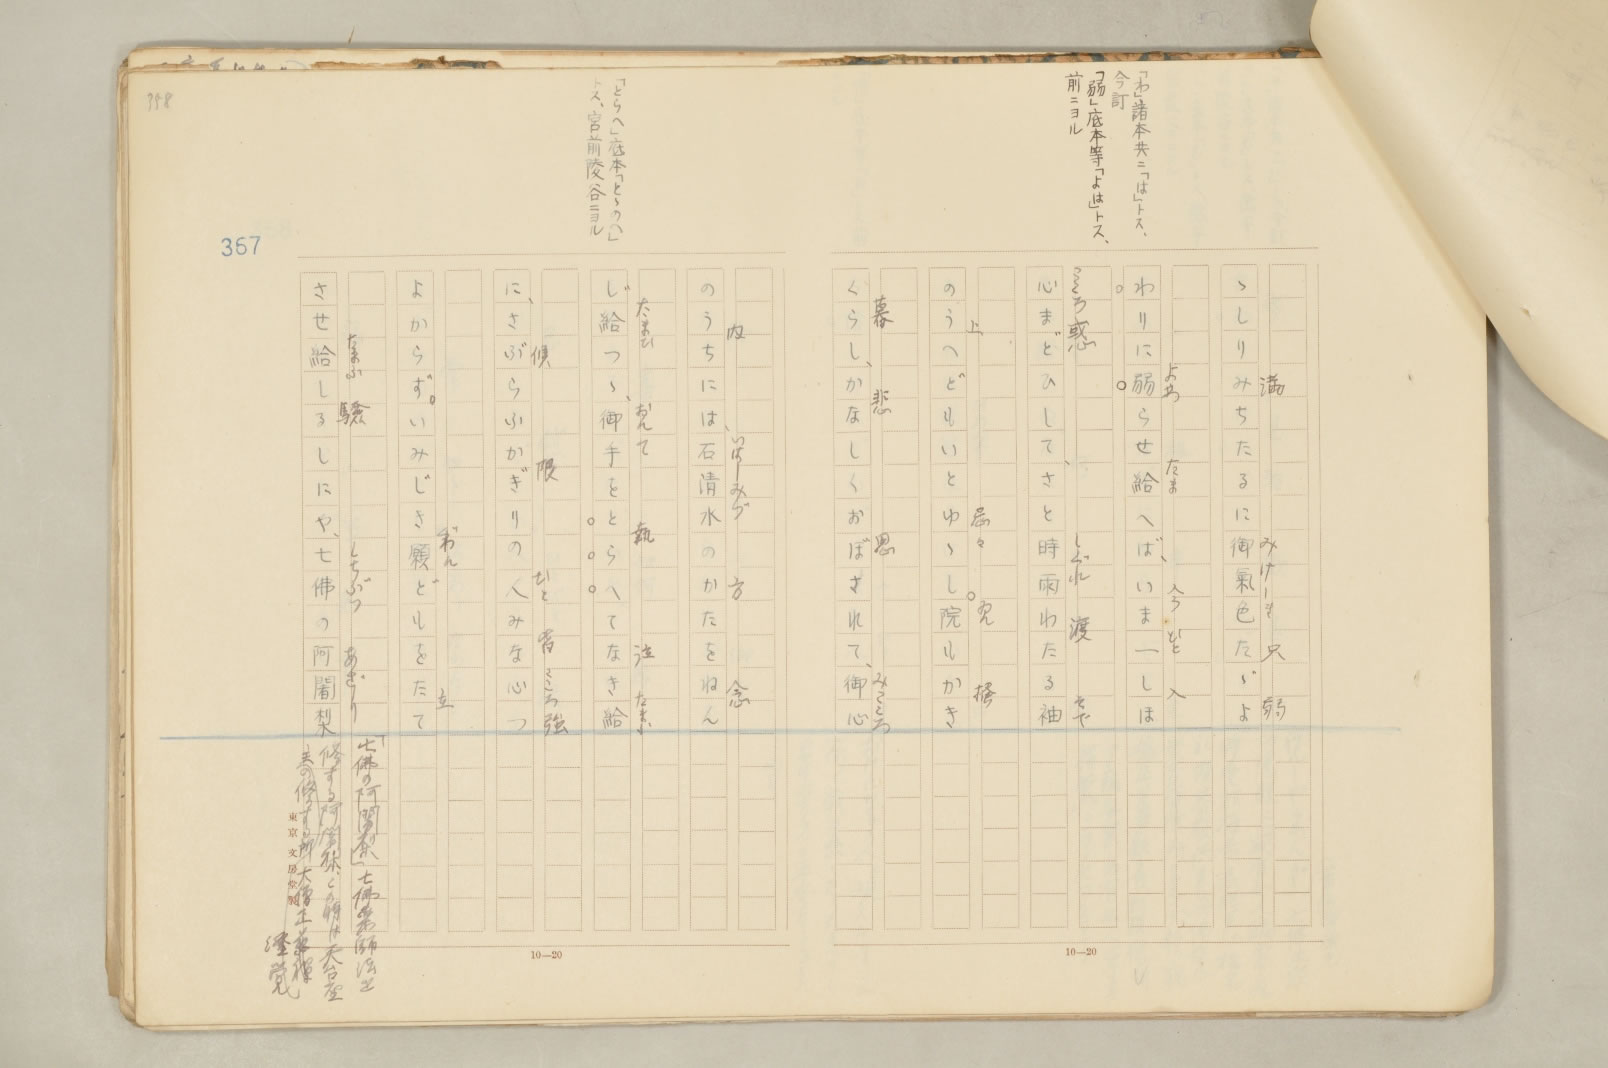 「わ」諸本共ニ「は」トス、
今訂
「弱」底本等「よは」トス、
前ニヨル
ゝしりみちたるに御氣色たゞよ
満 みけしき 只 弱
わりに弱らせ給へば、いま一しほ
よわ たま 今 ひと 入
心まどひして、さと時雨わたる袖
こころ惑 しぐれ 渡 そで
のうへどもいとゆゝし。院もかき
上 忌々 ゐん 掻
くらし、かなしくおぼされて、御心
暮 悲 思 みこころ
「とらへ」底本「とゝのへ」
トス、宮前陵谷ニヨル
のうちには、石清水のかたをねん
内 いはしみづ 方 念
じ給つゝ、御手をとらへてなき給
たまひ おんて 執 泣 たまふ
に、さぶらふかぎりの人みな心つ
候 限 ひと 皆 こころ強
よからず。いみじき願どもをたて
ぐわん 立
させ給しるしにや、七佛の阿闍梨
たまふ 験 しちぶつ あざり
「七佛の阿闍梨」七佛薬師法を
修する阿闍梨、この時は天台座
主の修する所 大僧正
東京文房堂製
367
358
10—20
10—20